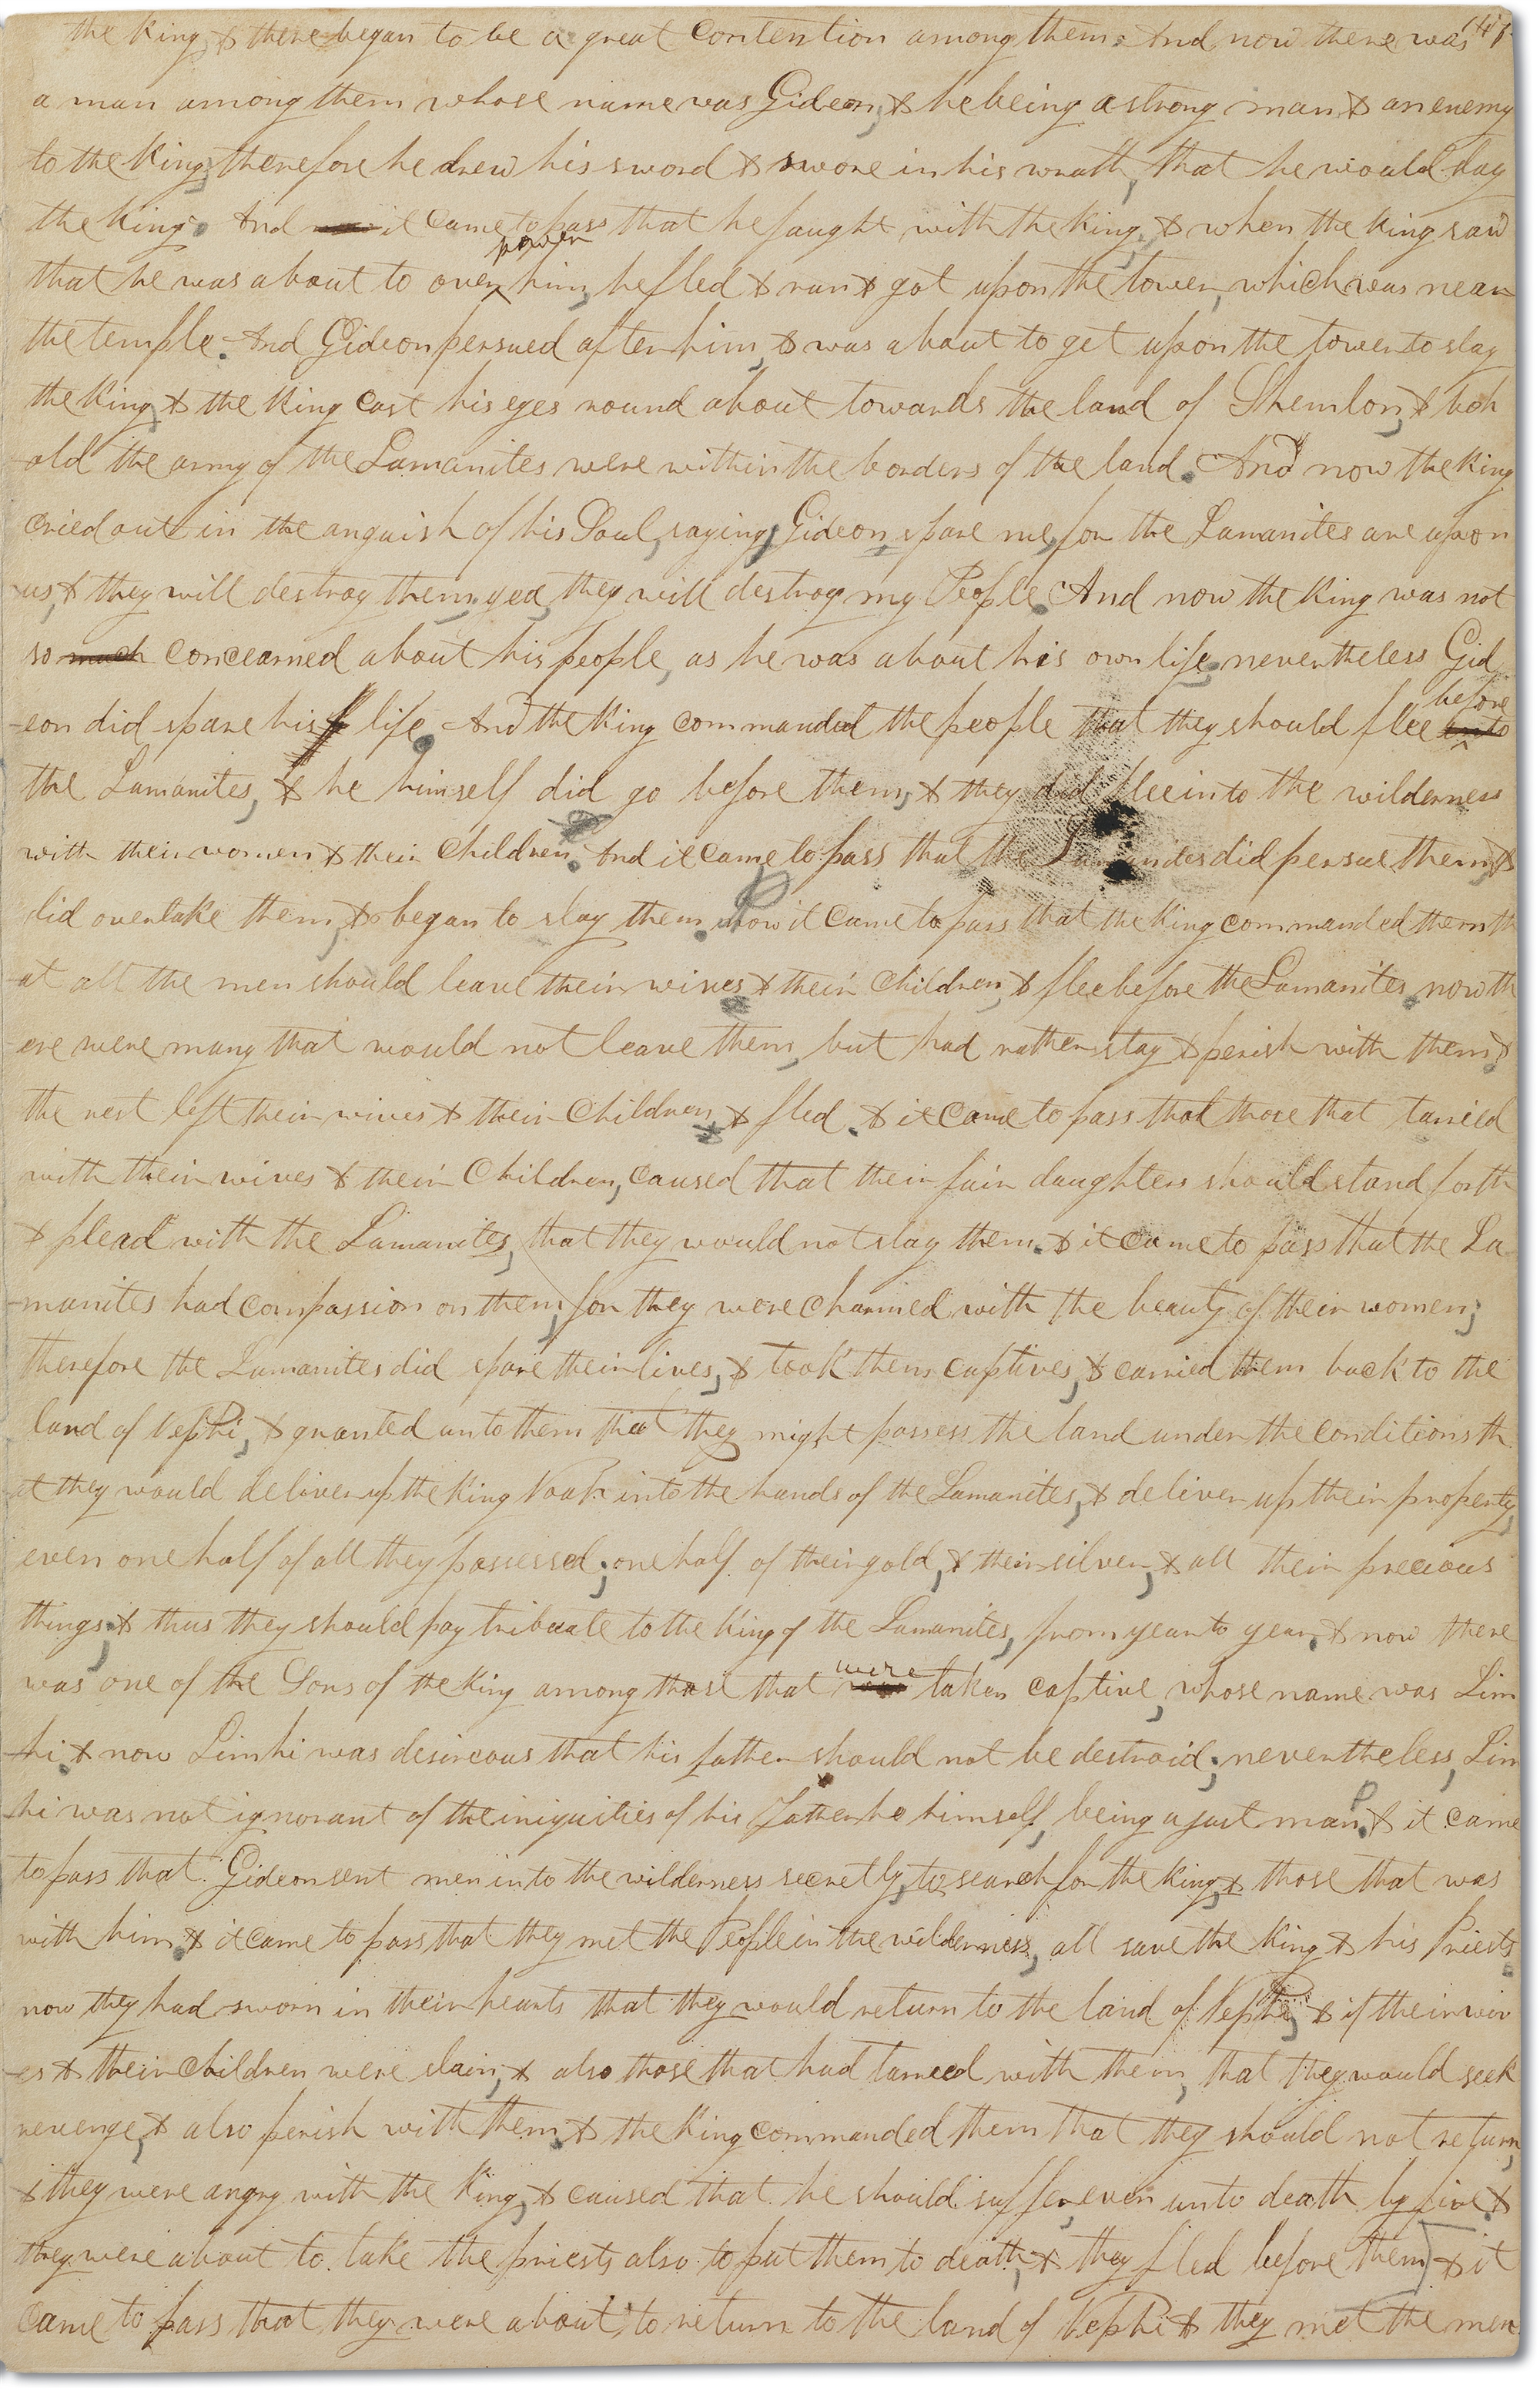 the King & there began to be a great contention among them. And now there was 147
a man among them whose name was Gideon, & he being a strong man & an enemy
to the King, therefore he drew his sword & swore in his wrath, that he would slay
the King. And it came to pass that he faught with the King, & when the King saw
power
that he was about to over him, he fled & ran & got upon the tower, which was near
the temple. And Gideon persued after him, & was about to get upon the tower to slay
the King, & the King cast his eyes round about towards the land of Shemlon, & beh
-old the army of the Lamanites were within the borders of the land. And now the King
cried out in the anguish of his Soul, saying, Gideon spare me, for the Lamanites are upon
us, & they will destroy them, yea, they will destroy my People. And now the King was not
so much concearned about his people, as he was about his own life, nevertheless Gid
before
-eon did spare his life. And the King commanded the people that they should flee unto
the Lamanites, & he himself did go before them, & they did flee into the wilderness
with their women & their Children. And it came to pass that the Lamanites did persue them, &
did overtake them, & began to slay them. now it came to pass that the King commanded them th
-at all the men should leave their wives & their Children, & flee before the Lamanites. now th
-ere were many that would not leave them, but had rather stay & perish with them, &
the rest left their wives & their Children, & fled. & it came to pass that those that tarried
with their wives & their Children, caused that their fair daughters should stand forth
& plead with the Lamanites, that they would not slay them. & it came to pass that the La
-manites had compassion on them, for they were charmed with the beauty of their women;
therefore the Lamanites did spare their lives, & took them captives, & carried them back to the
land of Nephi, & granted unto them that they might possess the land under the conditions th
at they would deliver up the King Noah into the hands of the Lamanites, & deliver up their property,
even one half of all they possessed; one half of their gold, & their silver, & all their precious
things, & thus they should pay tribuute to the King of the Lamanites, from year to year. & now there
were
was one of the Sons of the King among those that was taken captive, whose name was Lim
-hi. & now Limhi was desireous that his father should not be destroid; nevertheless, Lim
-hi was not ignorant of the iniquities of his Father he himself, being a just man. & it came
to pass that Gideon sent men into the wilderness secretly, to search for the King, & those that was
with him. & it came to pass that they met the People in the wilderness, all save the King & his Priests.
now they had sworn in their hearts that they would return to the land of Nephi, & if their wiv
-es & their Children were slain, & also those that had tarried with them, that they would seek
revenge, & also perish with them. & the King commanded them that they should not return,
& they were angry with the King, & caused that he should suffer, even unto death by fire. &
they were about to take the priests also to put them to death, & they fled before them & it
came to pass that they were about to return to the land of Nephi & they met the men